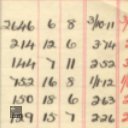 2646 6 8 3/10-11
214 12 6 374
144 7 11 352
752 16 8 1/1-12
150 18 6 263
129 15 7 226